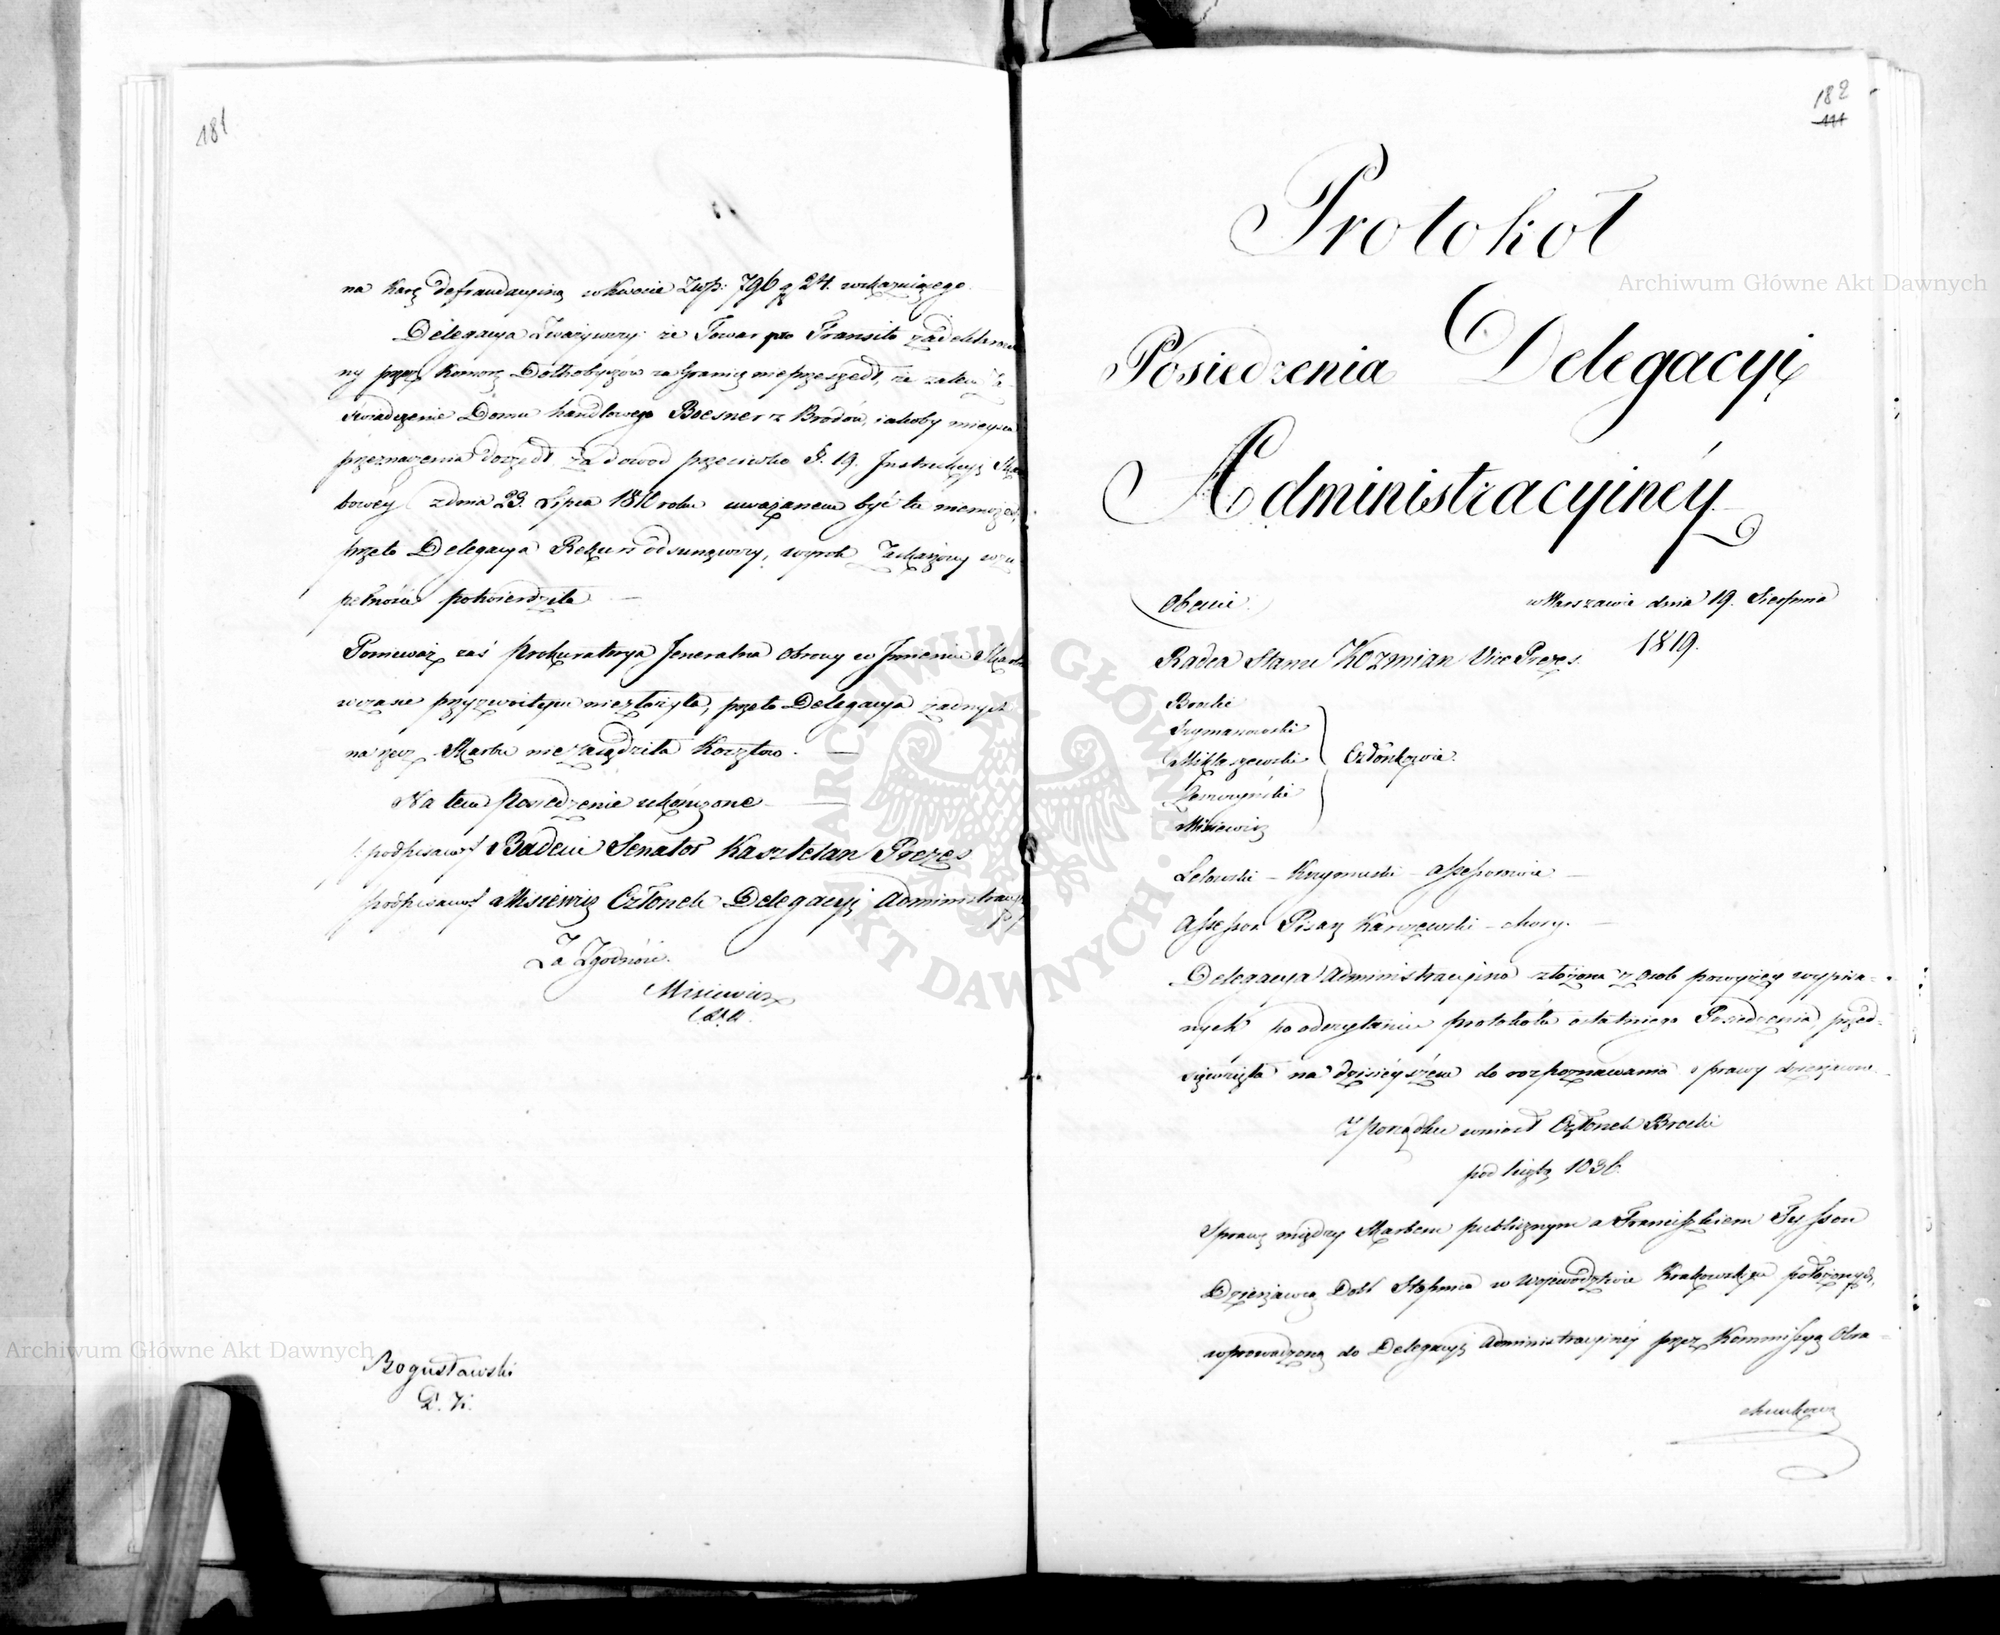 181
na karę defraudacyiną w kwocie Złp: 796 g 24. wskazuiącego.
Delegacya Zważywszy że Towar pro Transito zadeklarowa
ny przez Komorę Dołhobyczów za Granicę nieprzeszedł, że zatem Za
świadczenie Domu handlowego Boesner z Brodów, iakoby mieysca
przeznaczenia doszedł za dowod przeciwko §. 19. Instrukcyi Skar
bowéy z dnia 23. Lipca 1810 roku uważanem być tu niemoże,
przeto Delegacya Rekurs odsunąwszy, wyrok Zaskarżony w zu
pełności potwierdziła
Ponieważ zaś Prokuratorya Jeneralna Obrony w Jmieniu Skarbu
w czasie przyzwoitym niezłożyła, przeto Delegacya żadnych
na rzecz Skarbu nie zasądziła Kosztów.
Na tem Posiedzenie ukończone
podpisano/ Badeni Senator Kasztelan Prezes
podpisano/ Misiewicz Członek Delegacyi Administracyi
Za Zgodność.
Misiewicz
Bogusławski
182
111
Protokół
Posiedzenia Delegacyi
Administracyinéy
Obecni.
w Warszawie dnia 19. Sierpnia
1819.
Radca Stanu Kozmian Vice Prezes.
Brocki
Szymanowski
Mikłaszewski
Członkowie.
Misiewicz
Lelowski – Krzymuski – Assessorowie
Assessor Pisarz Karczewski – chory.
Delegacya Administracyina złożona z Osób powyżey wypisa-
nych po odczytaniu protokółu ostatniego Posiedzenia, przed-
sięwzięła na dzisiéyszém do rozpoznawania sprawy
Z Porządku wniosł Członek Brocki
pod liczbą 1036.
Sprawę między Skarbem publicznym a Franciszkiem Tysson
Dzierżawcą Dóbr w Województwie Krakowskiem położonych,
wprowadzoną do Delegacyi Administracyinéy przez Kommissyą Obra-
chunkową
Archiwum Główne Akt Dawnych
Archiwum Główne Akt Dawnych
ARCHIWUM GŁÓWNE AKT DAWNYCH